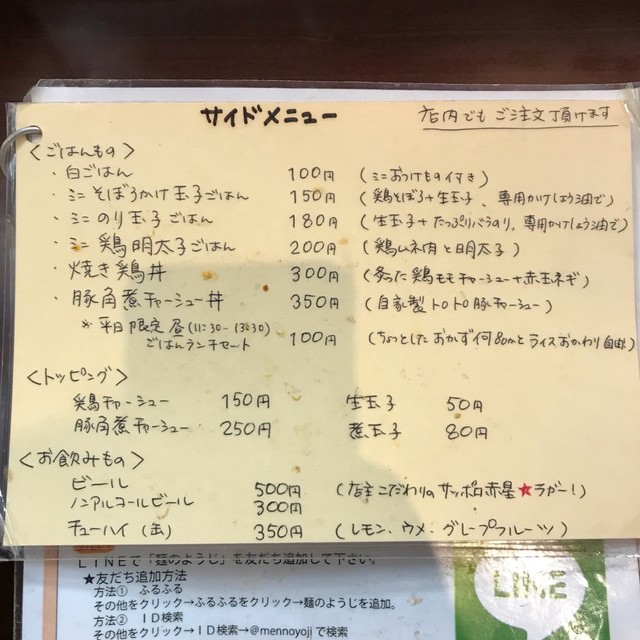 サイドメニュー
店内でもご注文頂けます
<ごはんもの>
・白ごはん 100円 (ミニおつけもの付き)
・ミニそぼろかけ玉子ごはん 150円 (鶏そぼろ+生玉子、専用かけしょう油で)
・ミニのり玉子ごはん 180円 (生玉子+たっぷりバラのり、専用かけしょう油で)
・ミニ鶏明太子ごはん 200円 (鶏ムネ肉と明太子)
・焼き鶏丼 300円 (炙った鶏モモチャーシュー+赤玉ネギ)
・豚角煮チャーシュー丼 350円 (自家製トロトロ豚チャーシュー)
※平日限定昼(11:30-13:30)
ごはんランチセット 100円 (ちょっとしたおかず何品かとライスおかわり自由)
<トッピング>
鶏チャーシュー 150円 生玉子 50円
豚角煮チャーシュー 250円 煮玉子 80円
<お飲みもの>
ビール 500円 (店主こだわりのサッポロ赤星★ラガー!)
ノンアルコールビール 300円
チューハイ(缶) 350円 (レモン、ウメ、グレープフルーツ)
LINEで「麺のようじ」を友だち追加して下さい。
★友だち追加方法
方法① ふるふる
その他をクリック→ふるふるをクリック→麺のようじを追加。
方法② ID検索
その他をクリック→ID検索→@mennoyojiで検索
LINE